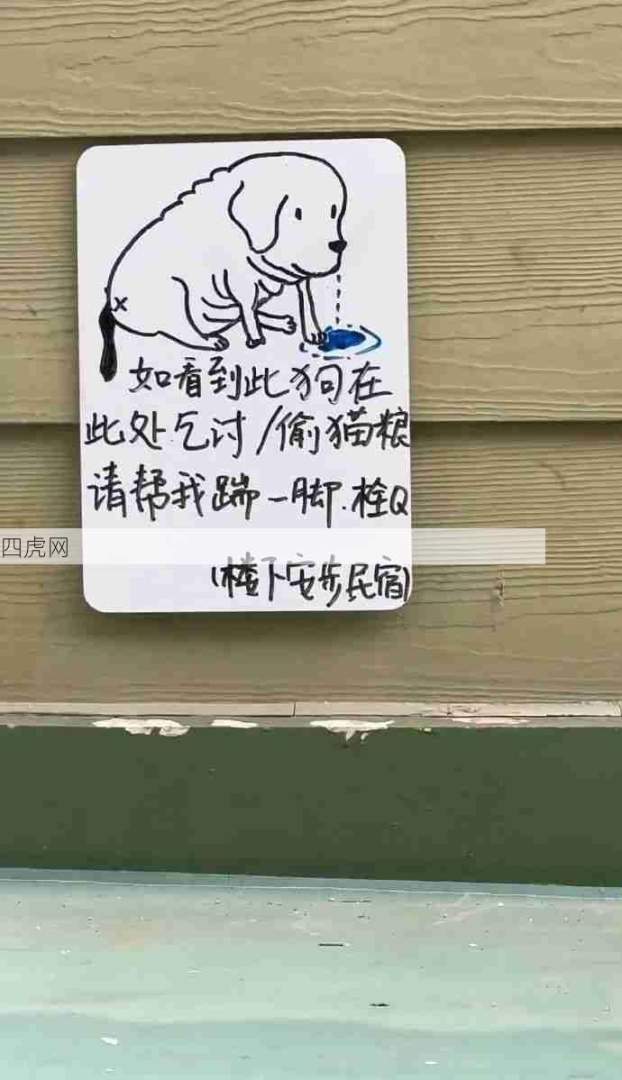 如看到此狗在
此处乞讨/偷猫粮
请帮我踹一脚.栓Q
四虎网
(楼下安步民宿)